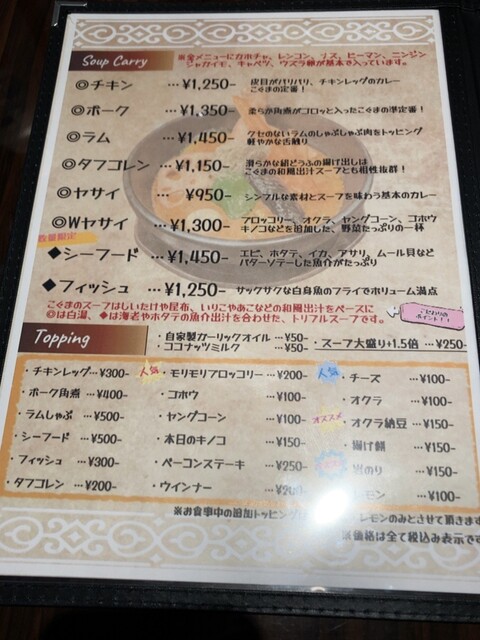 Soup Carry
※全メニューにカボチャ、レンコン、ナス、ピーマン、ニンジン
ジャガイモ、キャベツ、ウズラ卵が基本で入っています。
◎チキン …¥1,250- 皮目がパリパリ、チキンレッグのカレー
こぐまの定番！
◎ポーク …¥1,350- 柔らか角煮がゴロッと入ったこぐまの準定番！
◎ラム …¥1,450- クセのないラムのしゃぶしゃぶ肉をトッピング
軽やかな舌触り
◎タフコレン …¥1,150- 滑らかな絹どうふの揚げ出しは
こぐまの和風出汁スープとも相性抜群！
◎ヤサイ … ¥950- シンプルな素材とスープを味わう基本のカレー
◎Wヤサイ …¥1,300- ブロッコリー、オクラ、ヤングコーン、ゴボウ
キノコなどを追加した、野菜たっぷりの一杯
数量限定
◆シーフード …¥1,450- エビ、ホタテ、イカ、アサリ、ムール貝など
バターソテーした魚介がたっぷり
◆フィッシュ …¥1,250- サックサクな白身魚のフライでボリューム満点
こぐまのスープはしいたけや昆布、いりこやあごなどの和風出汁をベースに
◎は白湯、◆は海老やホタテの魚介出汁を合わせた、トリプルスープです。
こだわりの
ポイント！！
Topping
・自家製ガーリックオイル …¥50-
・ココナッツミルク …¥50-
・スープ大盛り+1.5倍 …¥250-
・チキンレッグ …¥300-
・ポーク角煮 …¥400-
・ラムしゃぶ …¥500-
・シーフード …¥500-
・フィッシュ …¥300-
・タフコレン …¥200-
人気 ・モリモリブロッコリー …¥200-
・ゴボウ …¥100-
・ヤングコーン …¥100-
・本日のキノコ …¥150-
・ベーコンステーキ …¥250-
・ウインナー …¥200-
人気 ・チーズ …¥100-
・オクラ …¥100-
オススメ ・オクラ納豆 …¥150-
・揚げ餅 …¥150-
・岩のり …¥150-
レモン …¥100-
※お食事中の追加トッピングは レモンのみとさせて頂きます
※価格は全て税込み表示です